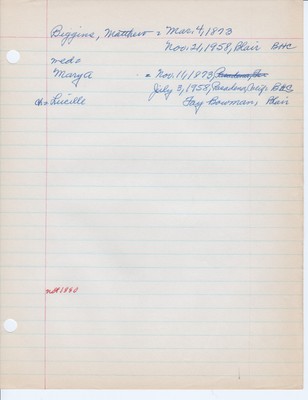 Biggins, Matthew = Mar. 4, 1873
Nov. 21, 1958, Blair BHC
wed=
Mary A = Nov. 16, 1873,
July 3, 1958, BHC
ch= Lucille Fay Bowman, Blair
not 1880